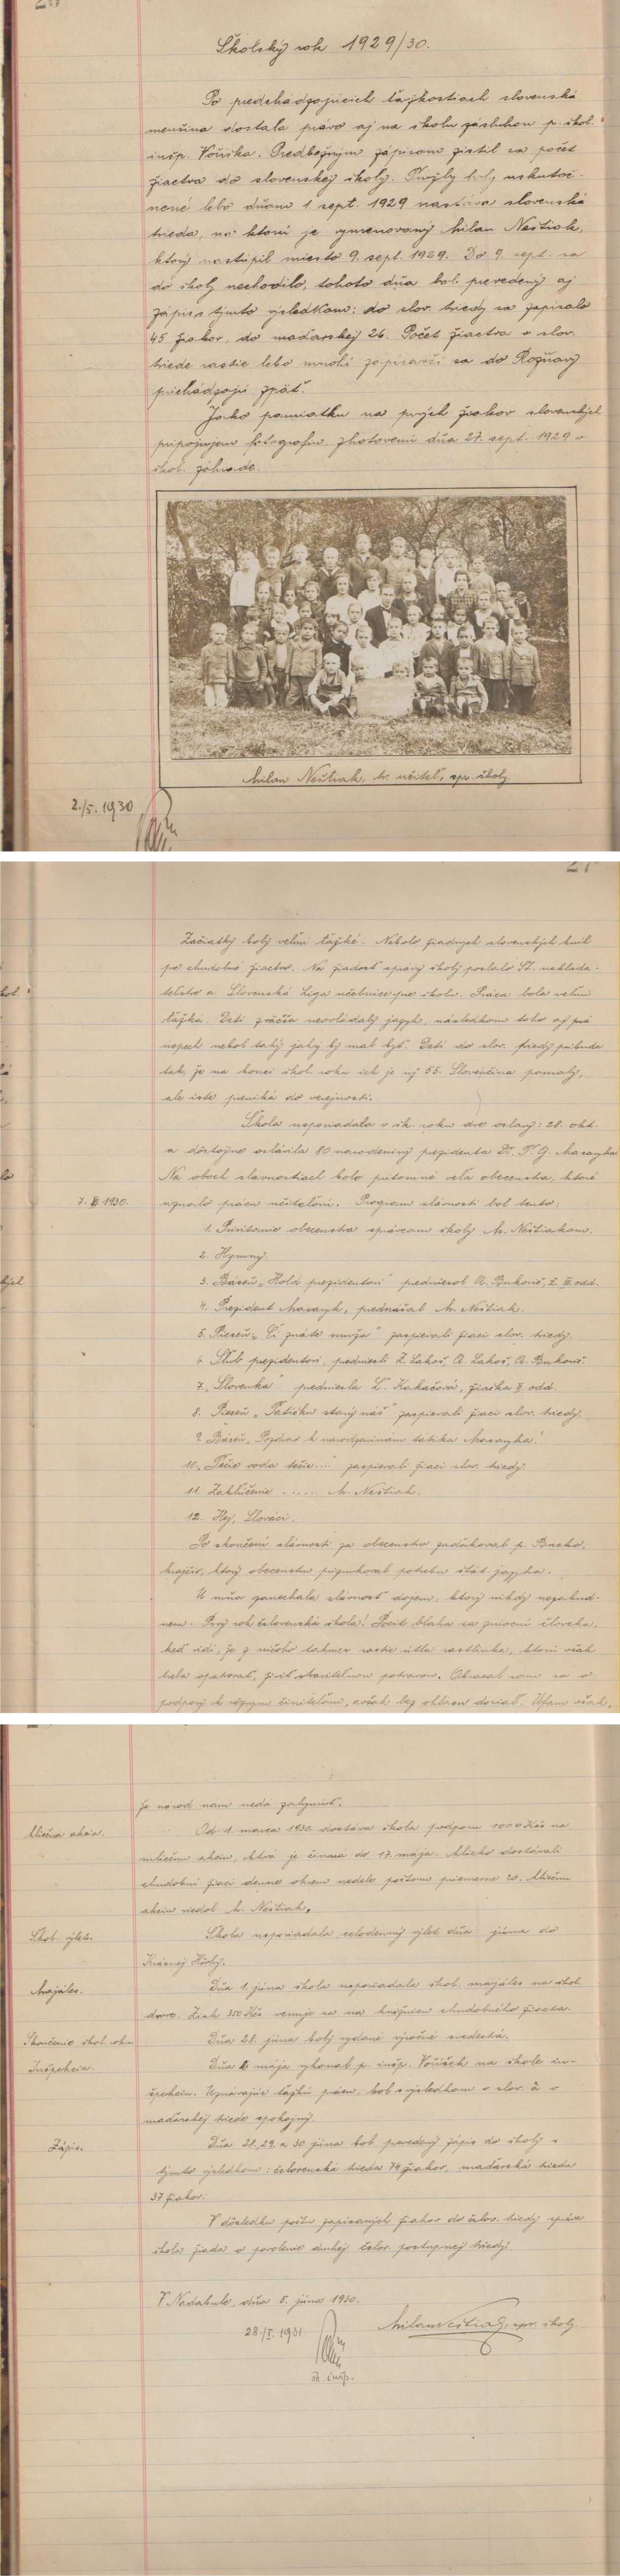 Školský rok 1929/30.
Po predchádzajúcich ťažkostiach slovenská
menšina dostala právo aj na školu zásluhou p. škol.
inšp. Voříška. Predbežným zápisom zistil sa počet
žiactva do slovenskej školy. boly uskutoč-
nené lebo dňom 1 sept. 1929 nastáva slovenská
trieda, na ktorú je vymenovaný Milan Neštiak,
ktorý nastúpil miesto 9. sept. 1929. Do 9. sept. sa
do školy nechodilo, tohoto dňa bol prevedený aj
zápis s týmto výsledkom: do slov. triedy sa zapísalo
45 žiakov, do maďarskej 26. Počet žiactva v slov.
triede rastie lebo mnohí zapísavší sa do Rožňavy
prichádzajú zpäť.
Jako pamiatku na prvých žiakov slovenských
pripojujem fotografiu zhotovenú dňa 27. sept. 1929 v
škol. záhrade.
Milan Neštiak, tr. učiteľ, spr. školy.
2./5. 1930
Začiatky boly veľmi ťažké. Nebolo žiadnych slovenských kníh
pre chudobné žiactvo. Na žiadosť správy školy poslalo Št. naklada-
teľstvo a Slovenská Liga učebnice pre školu. Práca bola veľmi
ťažká. Deti zväčša neovládaly jazyk, následkom toho aj
úspech nebol taký jaký by mal byť. Detí do slov. triedy pribúda
tak, že na konci škol. roku ich je už 55. Slovenčina pomaly,
ale iste preniká do verejnosti.
Škola usporiadala v šk. roku dve oslavy: 28. okt.
a dôstojne oslávila 80 narodeniny prezidenta Dr. T. G. Masaryka
Na oboch slávnostiach bolo prítomné veľa obecenstva, ktoré
7. III. 1930.
uznalo prácu učiteľom. Program slávnosti bol tento:
1. Privítanie obecenstva správcom školy M. Neštiakom.
2. Hymny.
3. Báseň „Hold prezidentovi" predniesol A. Bukovič, ž. III. odd.
4. Prezident Masaryk, prednášal M. Neštiak.
5. Pieseň: „Či znáte muža" zaspievali žiaci slov. triedy.
6. Sľub prezidentovi, predniesli Z. Lakoš, A. Lakoš, A. Bukovič.
7. „Slovenka" predniesla Ľ. Kukačová, žiačka II. odd.
8. Pieseň „Tatíčku starý náš" zaspievali žiaci slov. triedy.
9. Báseň „Pozdrav k narodeninám tatíka Masaryka."
10. „Tečie voda tečie...." zaspievali žiaci slov. triedy.
11. Zakľúčenie ..... M. Neštiak.
12. Hej, Slováci.
Po skončení slávnosti za obecenstvo poďakoval p.
krajčír, ktorý obecenstvu prizvukoval potrebu štát. jazyka.
U mňa zanechala slávnosť dojem, ktorý nikdy nezabud-
nem. Prvý rok čslovenská škola! Pocit blaha sa zmocní človeka,
keď vidí, že z ničoho takmer rastie útla rastlinka, ktorú však
treba opatrovať, živiť stráviteľnou potravou. Obracal som sa o
podporu k rôznym činiteľom, avšak bez ohlasu dosiaľ. Úfam však,
že národ nám nedá zahynúť.
Mliečna akcia.
Od 1. marca 1930 dostáva škola podporu 1000 Kčs na
mliečnu akciu, ktorá je činná do 17. mája. Mlieko dostávali
chudobní žiaci denne okrem nedele počtom priemerne 20. Mliečnu
akciu viedol M. Neštiak.
Škol. výlet.
Škola usporiadala celodenný výlet dňa júna do
Krásnej Hôrky.
Majáles.
Dňa 1. júna škola usporiadala škol. majáles na škol.
dvore. Zisk 350 Kčs venuje sa na knižnicu chudobného žiactva.
Skončenie škol. roku
Dňa 28. júna boly vydané výročné svedectvá.
Inšpekcia.
Dňa 2 mája vykonal p. inšp. Voříšek na škole in-
špekciu. Uznávajúc ťažkú prácu, bol s výsledkom v slov. a v
maďarskej triede spokojný.
Zápis.
Dňa 28, 29. a 30 júna bol prevedený zápis do školy s
týmto výsledkom: čslovenská trieda 74 žiakov, maďarská trieda
37 žiakov.
V dôsledku počtu zapísaných žiakov do čslov. triedy správa
školy žiada o povolenie druhej čslov. postupnej triedy.
V Nadabule, dňa 5. júna 1930.
28./I. 1931
Milan Neštiak, spr. školy.
šk. inšp.